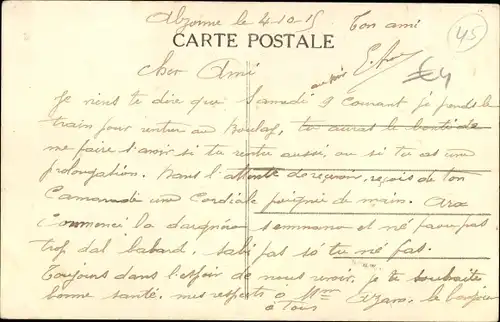 Alzonne le 4-10-15
Ton ami
45
CARTE POSTALE
Cher Ami
au revoir
Je viens te dire que Samedi 9 Courant je prends le
train pour rentrer au Boulay, tu auras le bonté de
me faire savoir si tu rentre aussi, ou si tu as une
prolongation. Dans l'attente de reçevoir, reçois de ton
Camarade une Cordiale poignée de main.
Commencé la semmano et né pas
trop dal labard, sabi pas so tu né fas.
Toujours dans l'espoir de nous revoir, je te souhaite
bonne santé, mes respects à Mme le bonjour
à tous